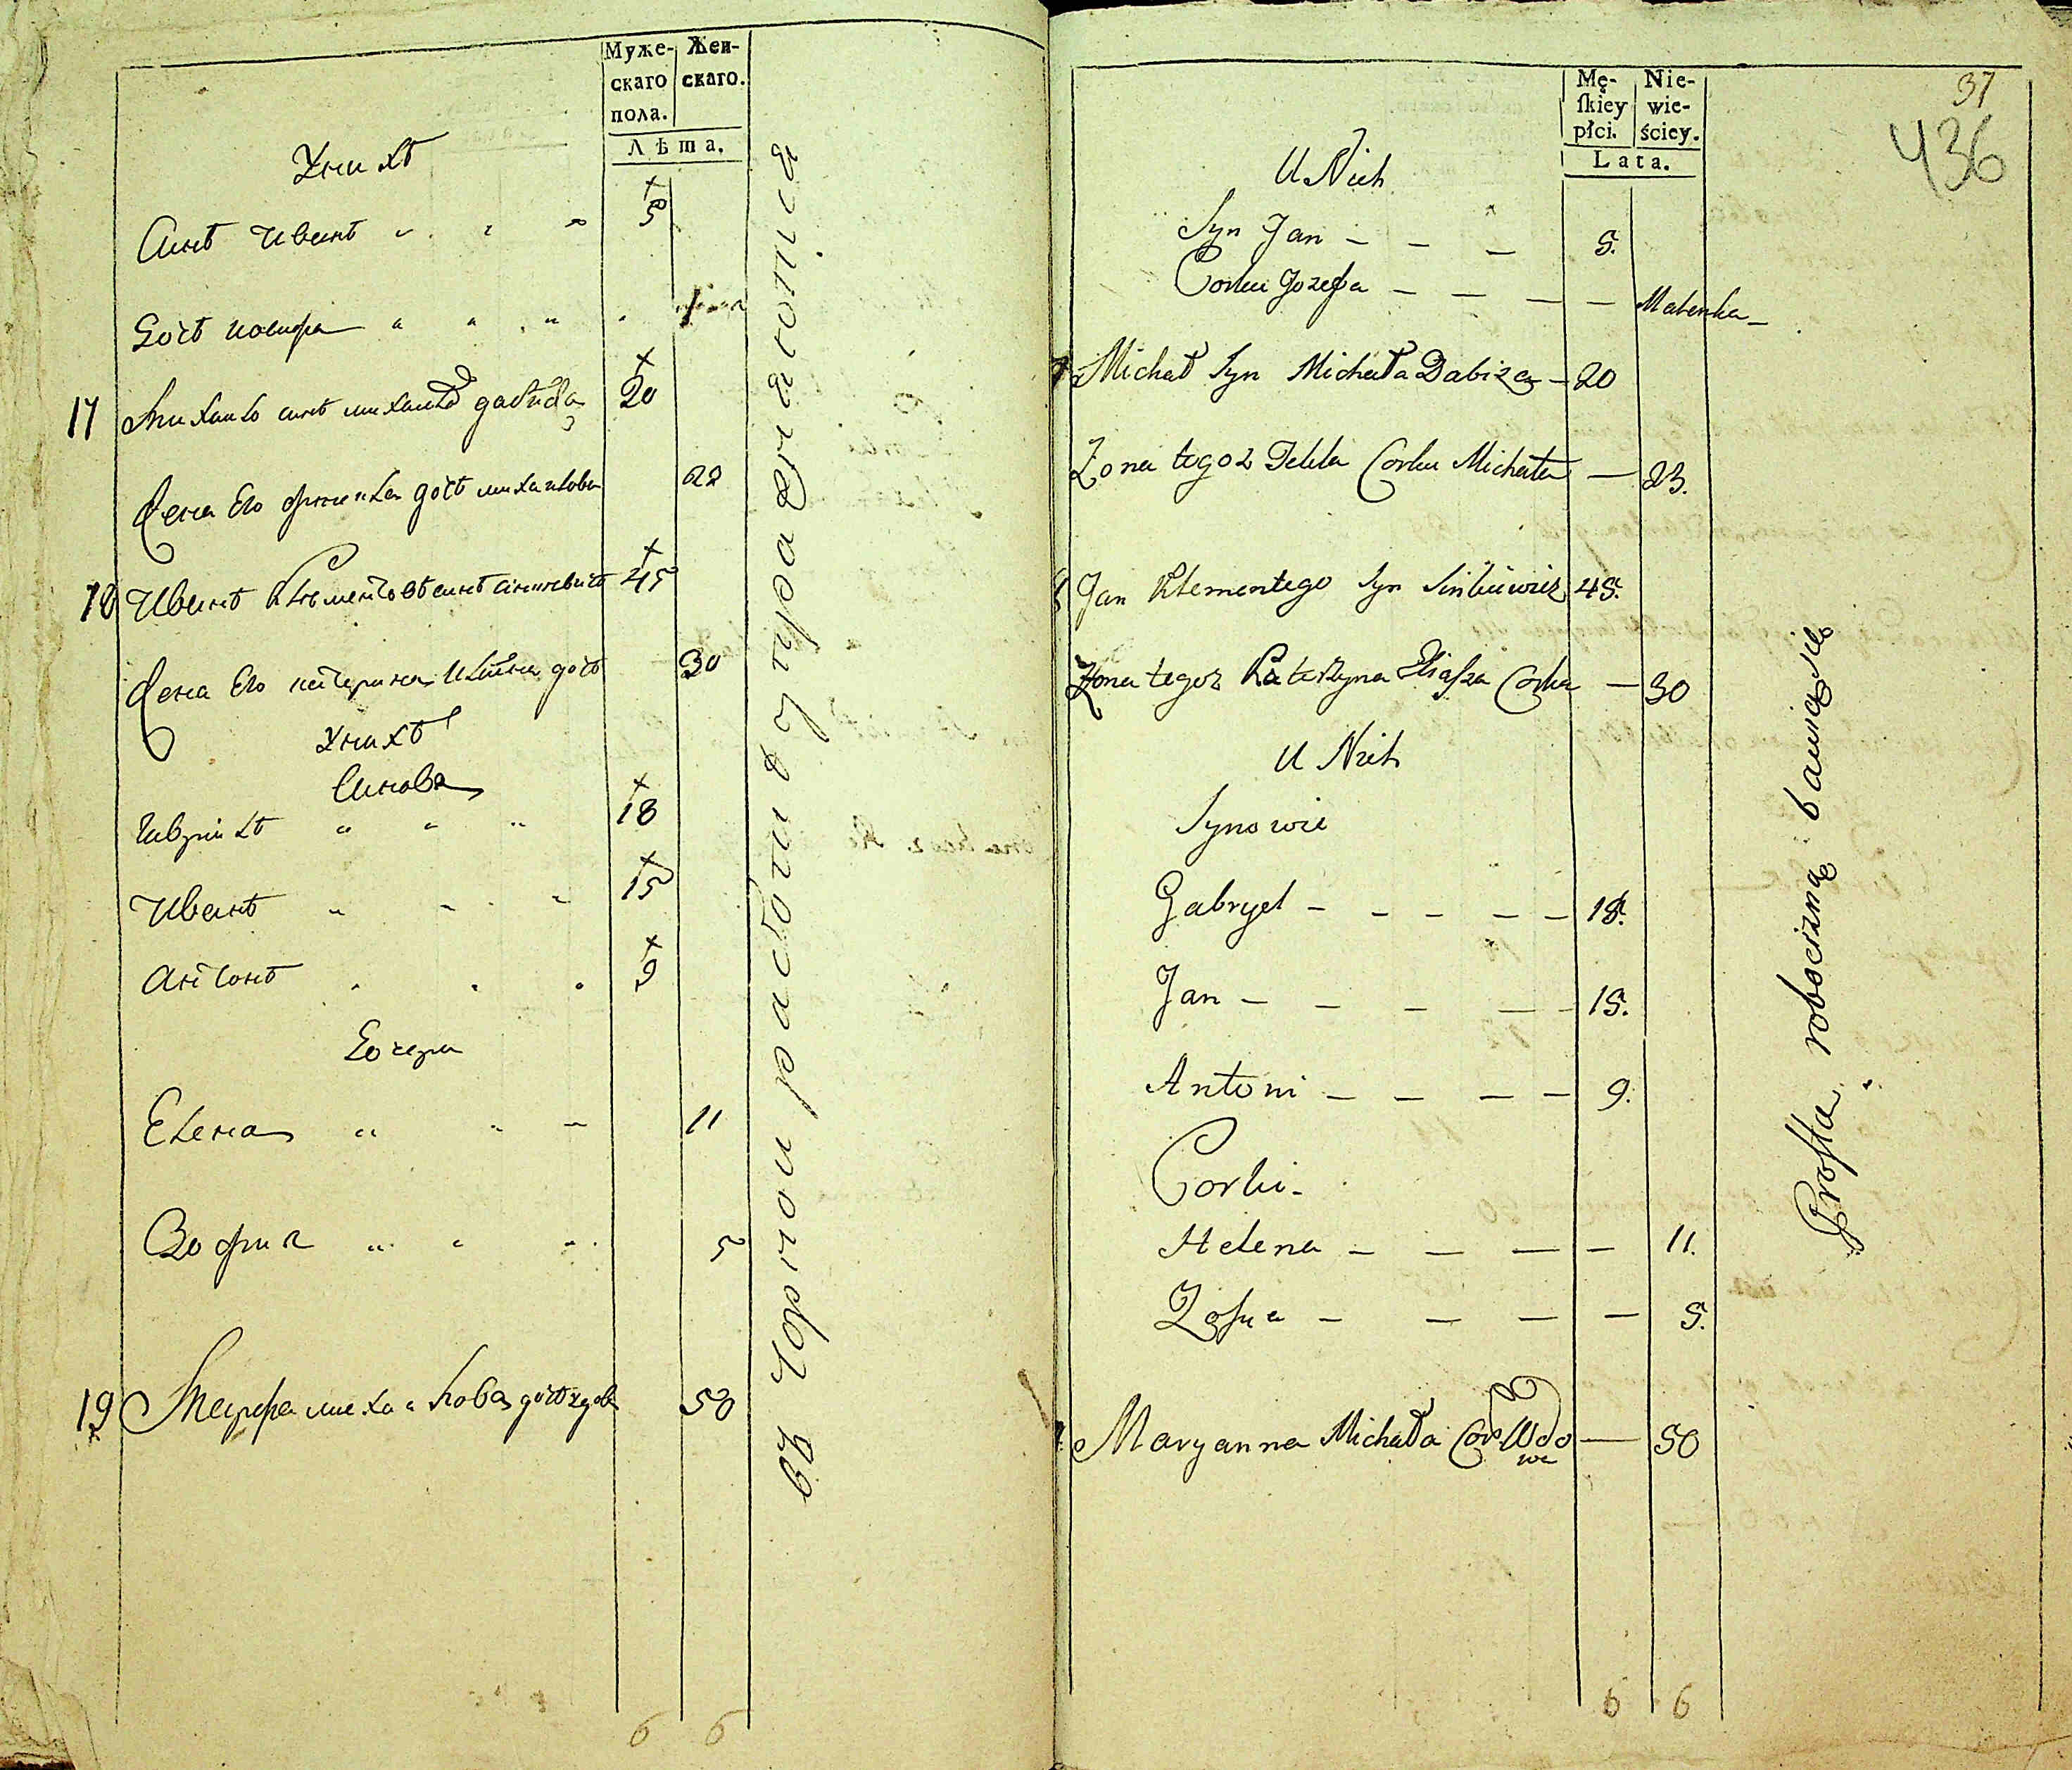 Муже- Жен-
скаго скаго.
пола.
Лѣта.
У нихъ
Синъ Иванъ 5
Дочъ иозифа 1
17 Михаило синъ михаила дабиза 20
Жена Его дочъ михаилова 22
18 Иванъ Клементовъ синъ синкевичъ 45
Жена Его катерина илина дочъ 30
У нихъ
Синова
Гавриилъ 18
Иванъ 15
Антонъ 9
Дочери
Елена 11
Зофия 5
19 Марфа михаилова дочъ вдова 50
въ чорной работи упражняютця
6 6
37
436
Mę- Nie-
ſkiey wie-
płci. ściey.
Lata.
U Nich
Syn Jan — — — 5.
Corka Jozefa — — — — Malenka —
Michał Syn Michała Dabiza — 20
Zona tegoz Tekla Corka Michała — 23.
Jan Klementego Syn Sinkiewicz 45.
Zona tegoz Katerzyna Eliaſza Corka — 30
U Nich
Synowie
Gabryel — — — — — 18.
Jan — — — — 15.
Antoni — — — — 9.
Corki.
Helena — — — — 11.
Zofia — — — — 5.
Maryanna Michała Cor Wdo — 50
wa
Prosta robocizną bawią się
6 6